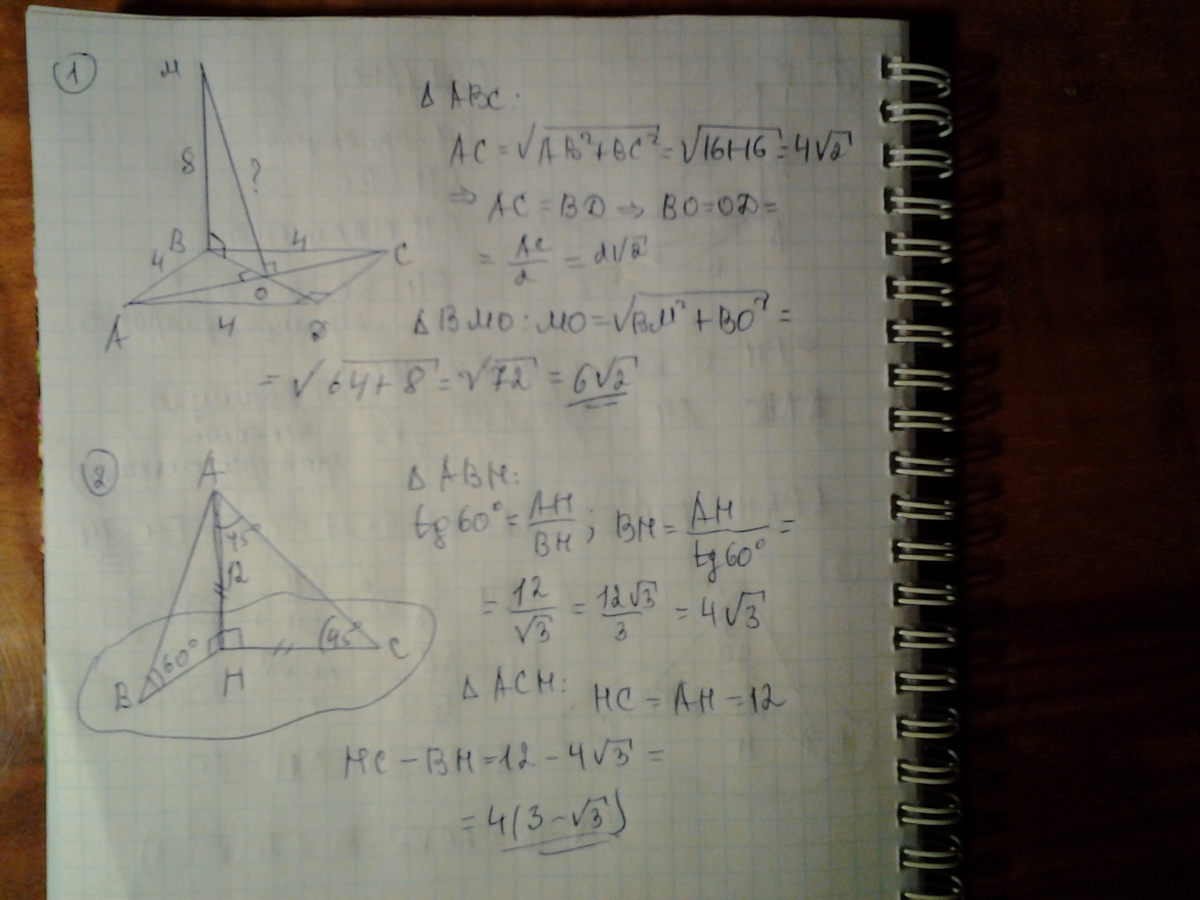 1
M
8
?
B
4
4
C
O
A
4
Δ ABC:
AC = √AB²+BC² = √16+16 = 4√2
⇒ AC = BD → BO=OD=
= AC/2 = 2√2
Δ BMO: MO = √BM² + BO² =
= √64+8 = √72 = 6√2
2
A
45
12
60°
45
B
H
C
Δ ABH:
tg60° = AH/BH ; BH = AH/tg60° =
= 12/√3 = 12√3/3 = 4√3
Δ ACH: HC = AH = 12
HC – BH = 12 – 4√3 =
= 4(3 – √3)